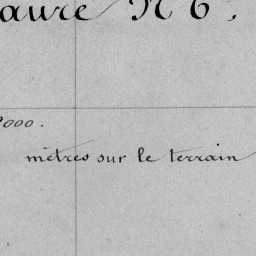 aure N 6.
000.
mètres sur le terrain